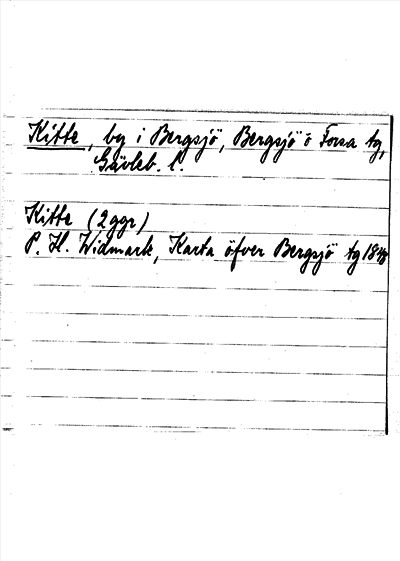 Kitte, by i Bergsjö, Bergsjö o Forsa tg,
Gävleb. l.
Kitte (2 ggr)
P. H. Widmark, Karta öfver Bergsjö tg